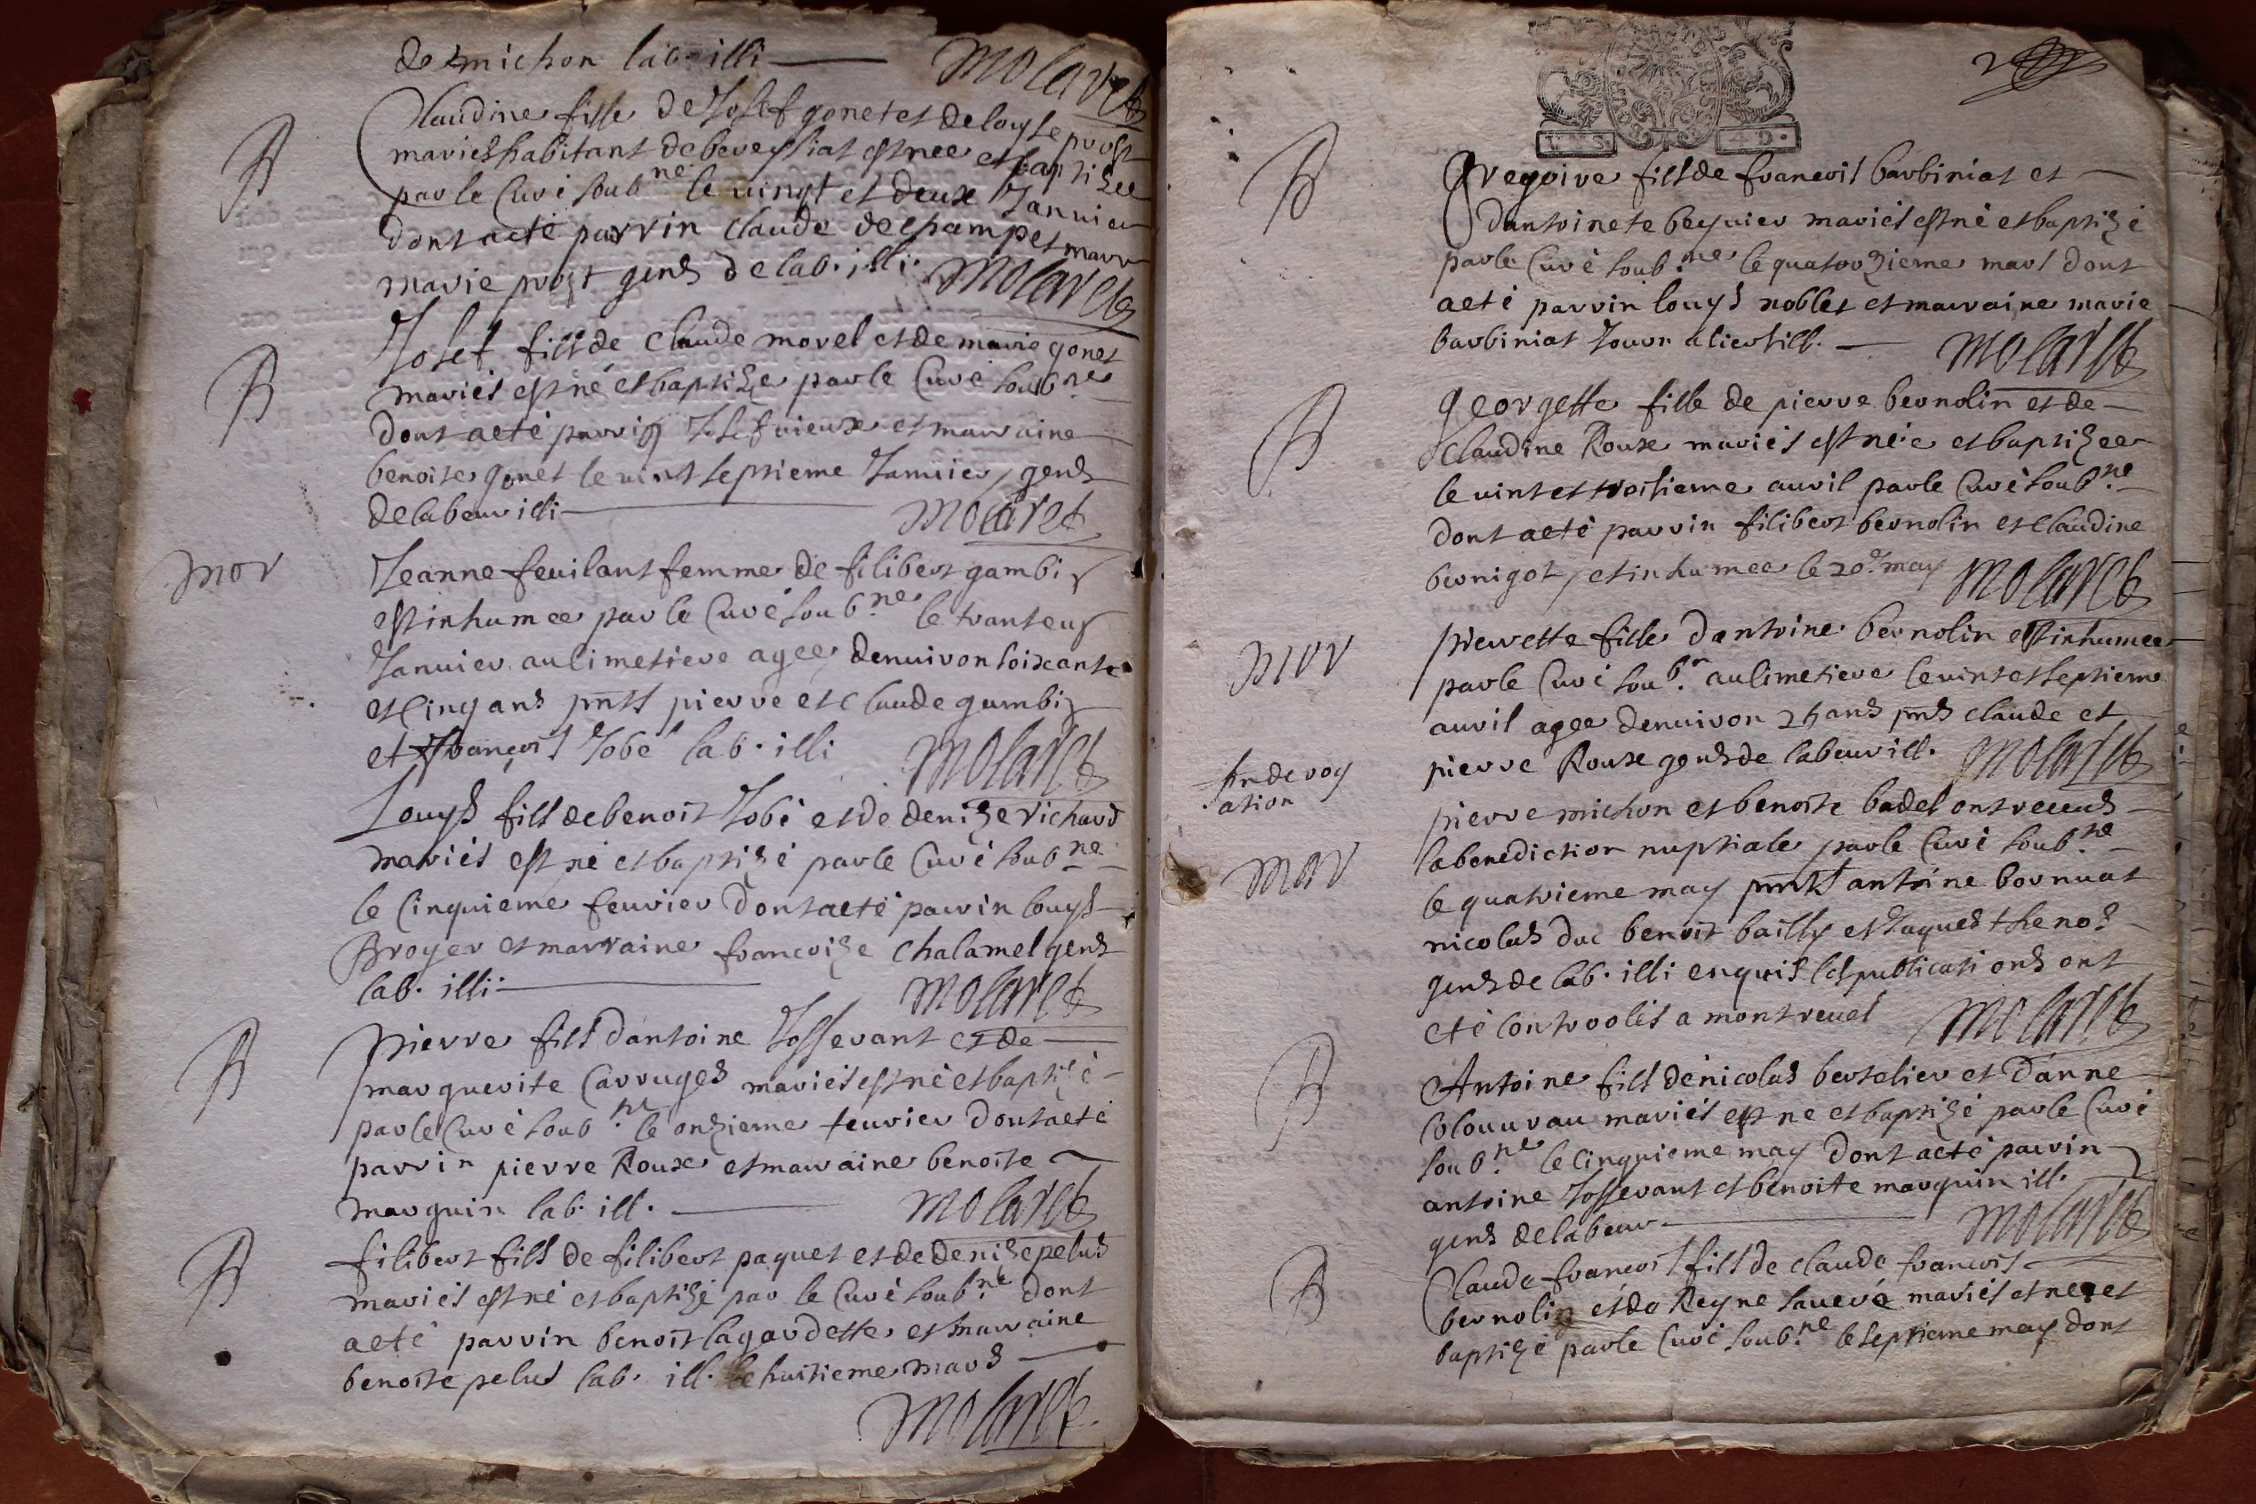 de michon lab. illi Molaret
Claudine fille de Josef gonet et de louyse prost
B
mariés habitant de bereysiat est nee et baptizee
par le Curé soub.né le vingt et deux Janvier
dont acte parrin claude deschamp et marr
marie prost gens de lab. illi. Molaret
Josef fils de Claude morel et de marie gonet
B
mariés est né et baptize par le Curé soub.né
dont acte parrin Josef vieux et marraine
benoite gonet le vint septieme Janvier, gens
de labeur illi Molaret
mor
Jeanne feuilant femme de filibert gambi
est inhumee par le Curé soub.né le trante uny
Janvier au simetiere agee denviron soixante
et cinq ans pnts pierre et Claude gambi
et françois Jobé lab. illi Molaret
Louys fils de benoit Jobé et de denize richard
mariés est né et baptizé par le Curé soub.né
le Cinquieme feuvrier dont acte parrin louys
Broyer et marraine francoize chalamel gens
lab. illi. Molaret
B
Pierre fils dantoine Josserant et de
marguerite Carruges mariés est né et baptizé
par le Curé soub.né le onzieme feuvrier dont acte
parrin pierre Roux et marraine benoite
marguin lab. ill. Molaret
B
filibert fils de filibert paquet et de denize pelus
mariés est né et baptizé par le Curé soub.né dont
acte parrin benoit lagardette et marraine
benoite pelus lab. ill. le huitieme mars
Molaret
2
B
Gregoire fils de francois barbiniat et
dantoinete beyvier mariés est né et baptizé
par le Curé soub.né le quatorzieme mars dont
acté parrin louys nobles et marraine marie
barbiniat Journaliers ill. Molaret
B
Georgette fille de pierre bernolin et de
Claudine Roux mariés est née et baptizee
le vint et troisieme avril par le Curé soub.né
dont acté parrin filibert bernolin et Claudine
bernigot, et inhumee le 20e may Molaret
mor
Pierrette fille dantoine bernolin est inhumee
par le Curé soub.n au simetiere le vint et septieme
avril agee denviron 25 ans pns claude et
pierre Roux gens de labeur ill. Molaret
pierre michon et benoite badel ont receus
mar
la benediction nuptiale par le Curé soub.né
le quatrieme may pnts antoine bornuat
nicolas duc benoit bailly et Jaques thenos
gens de lab. illi enquis les publications ont
eté controolés a montrevel Molaret
B
Antoine fils de nicolas bertelier et danne
colouvrau mariés est né et baptizé par le Curé
soub.né le Cinquieme may dont acté parrin
antoine Josserant et benoite marguin ill.
gens de labeur Molaret
B
Claude francois fils de claude francois
bernolin et de Reyne mariés et né et
baptizé par le Curé soub.né le septieme may dont